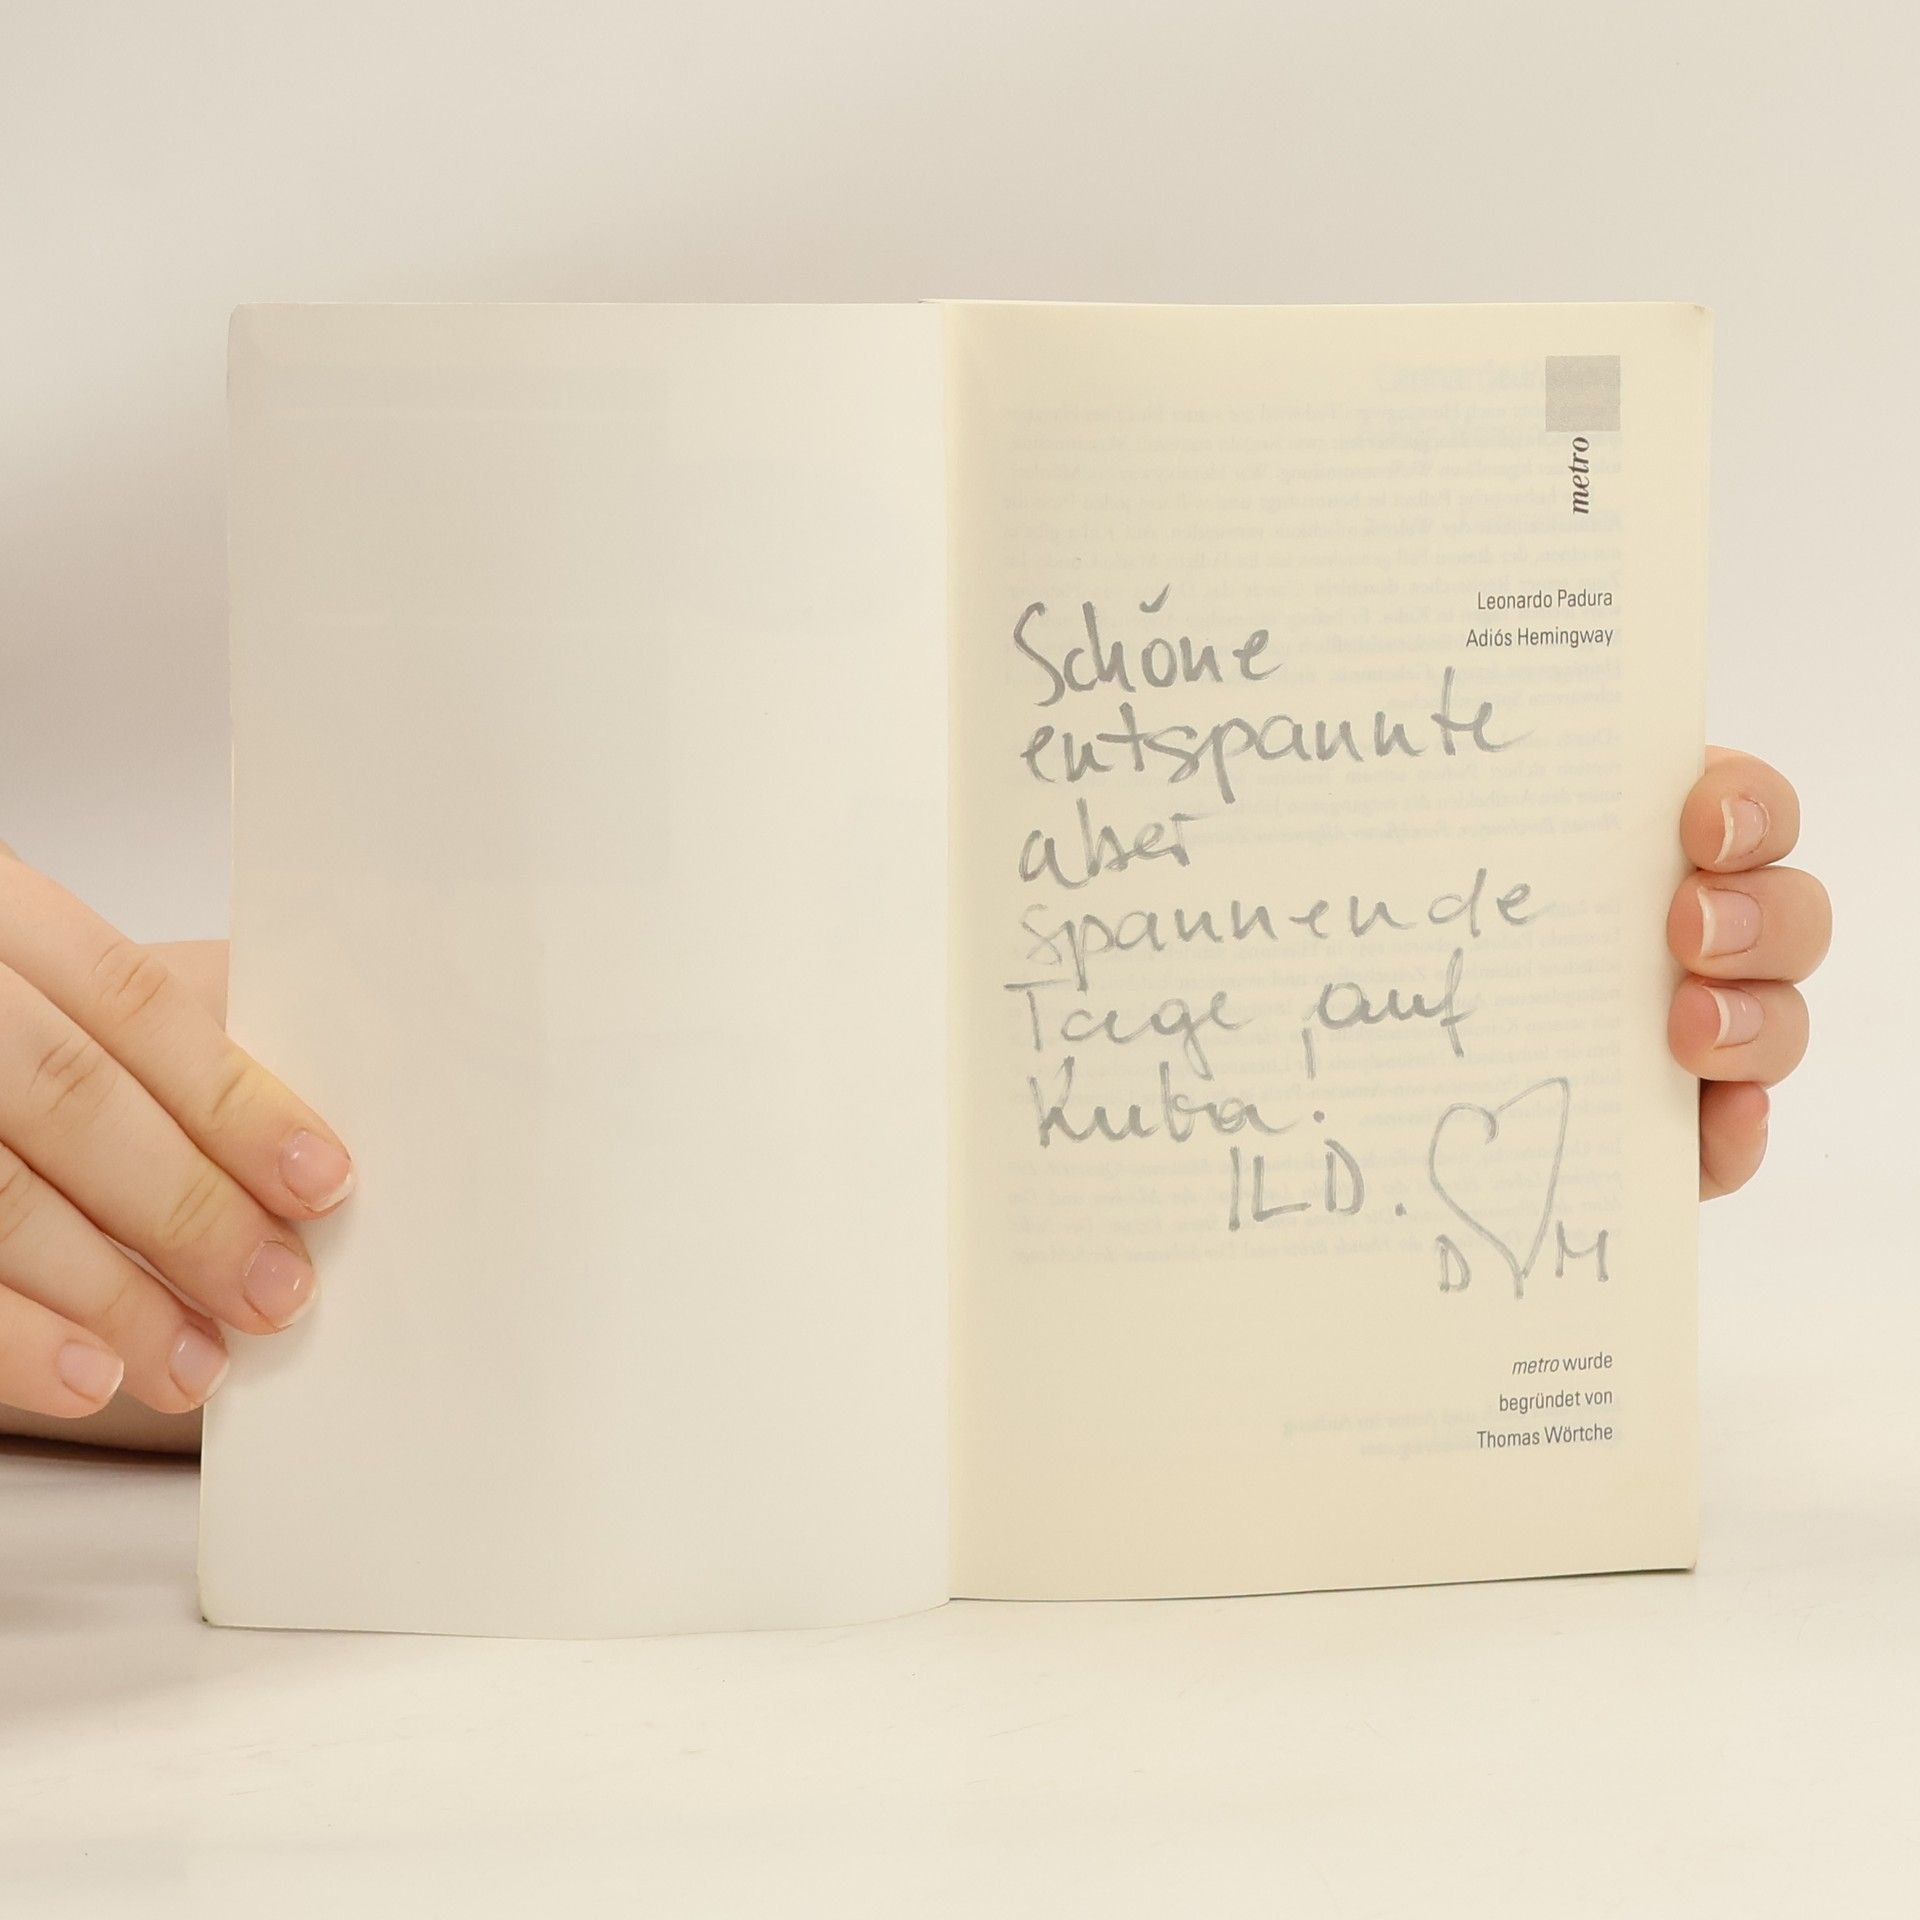 metro
Leonardo Padura
Adiós Hemingway
Schöne
entspannte
aber
spannende
Tage auf
Kuba!
ILD.
D M
metro wurde
begründet von
Thomas Wörtche